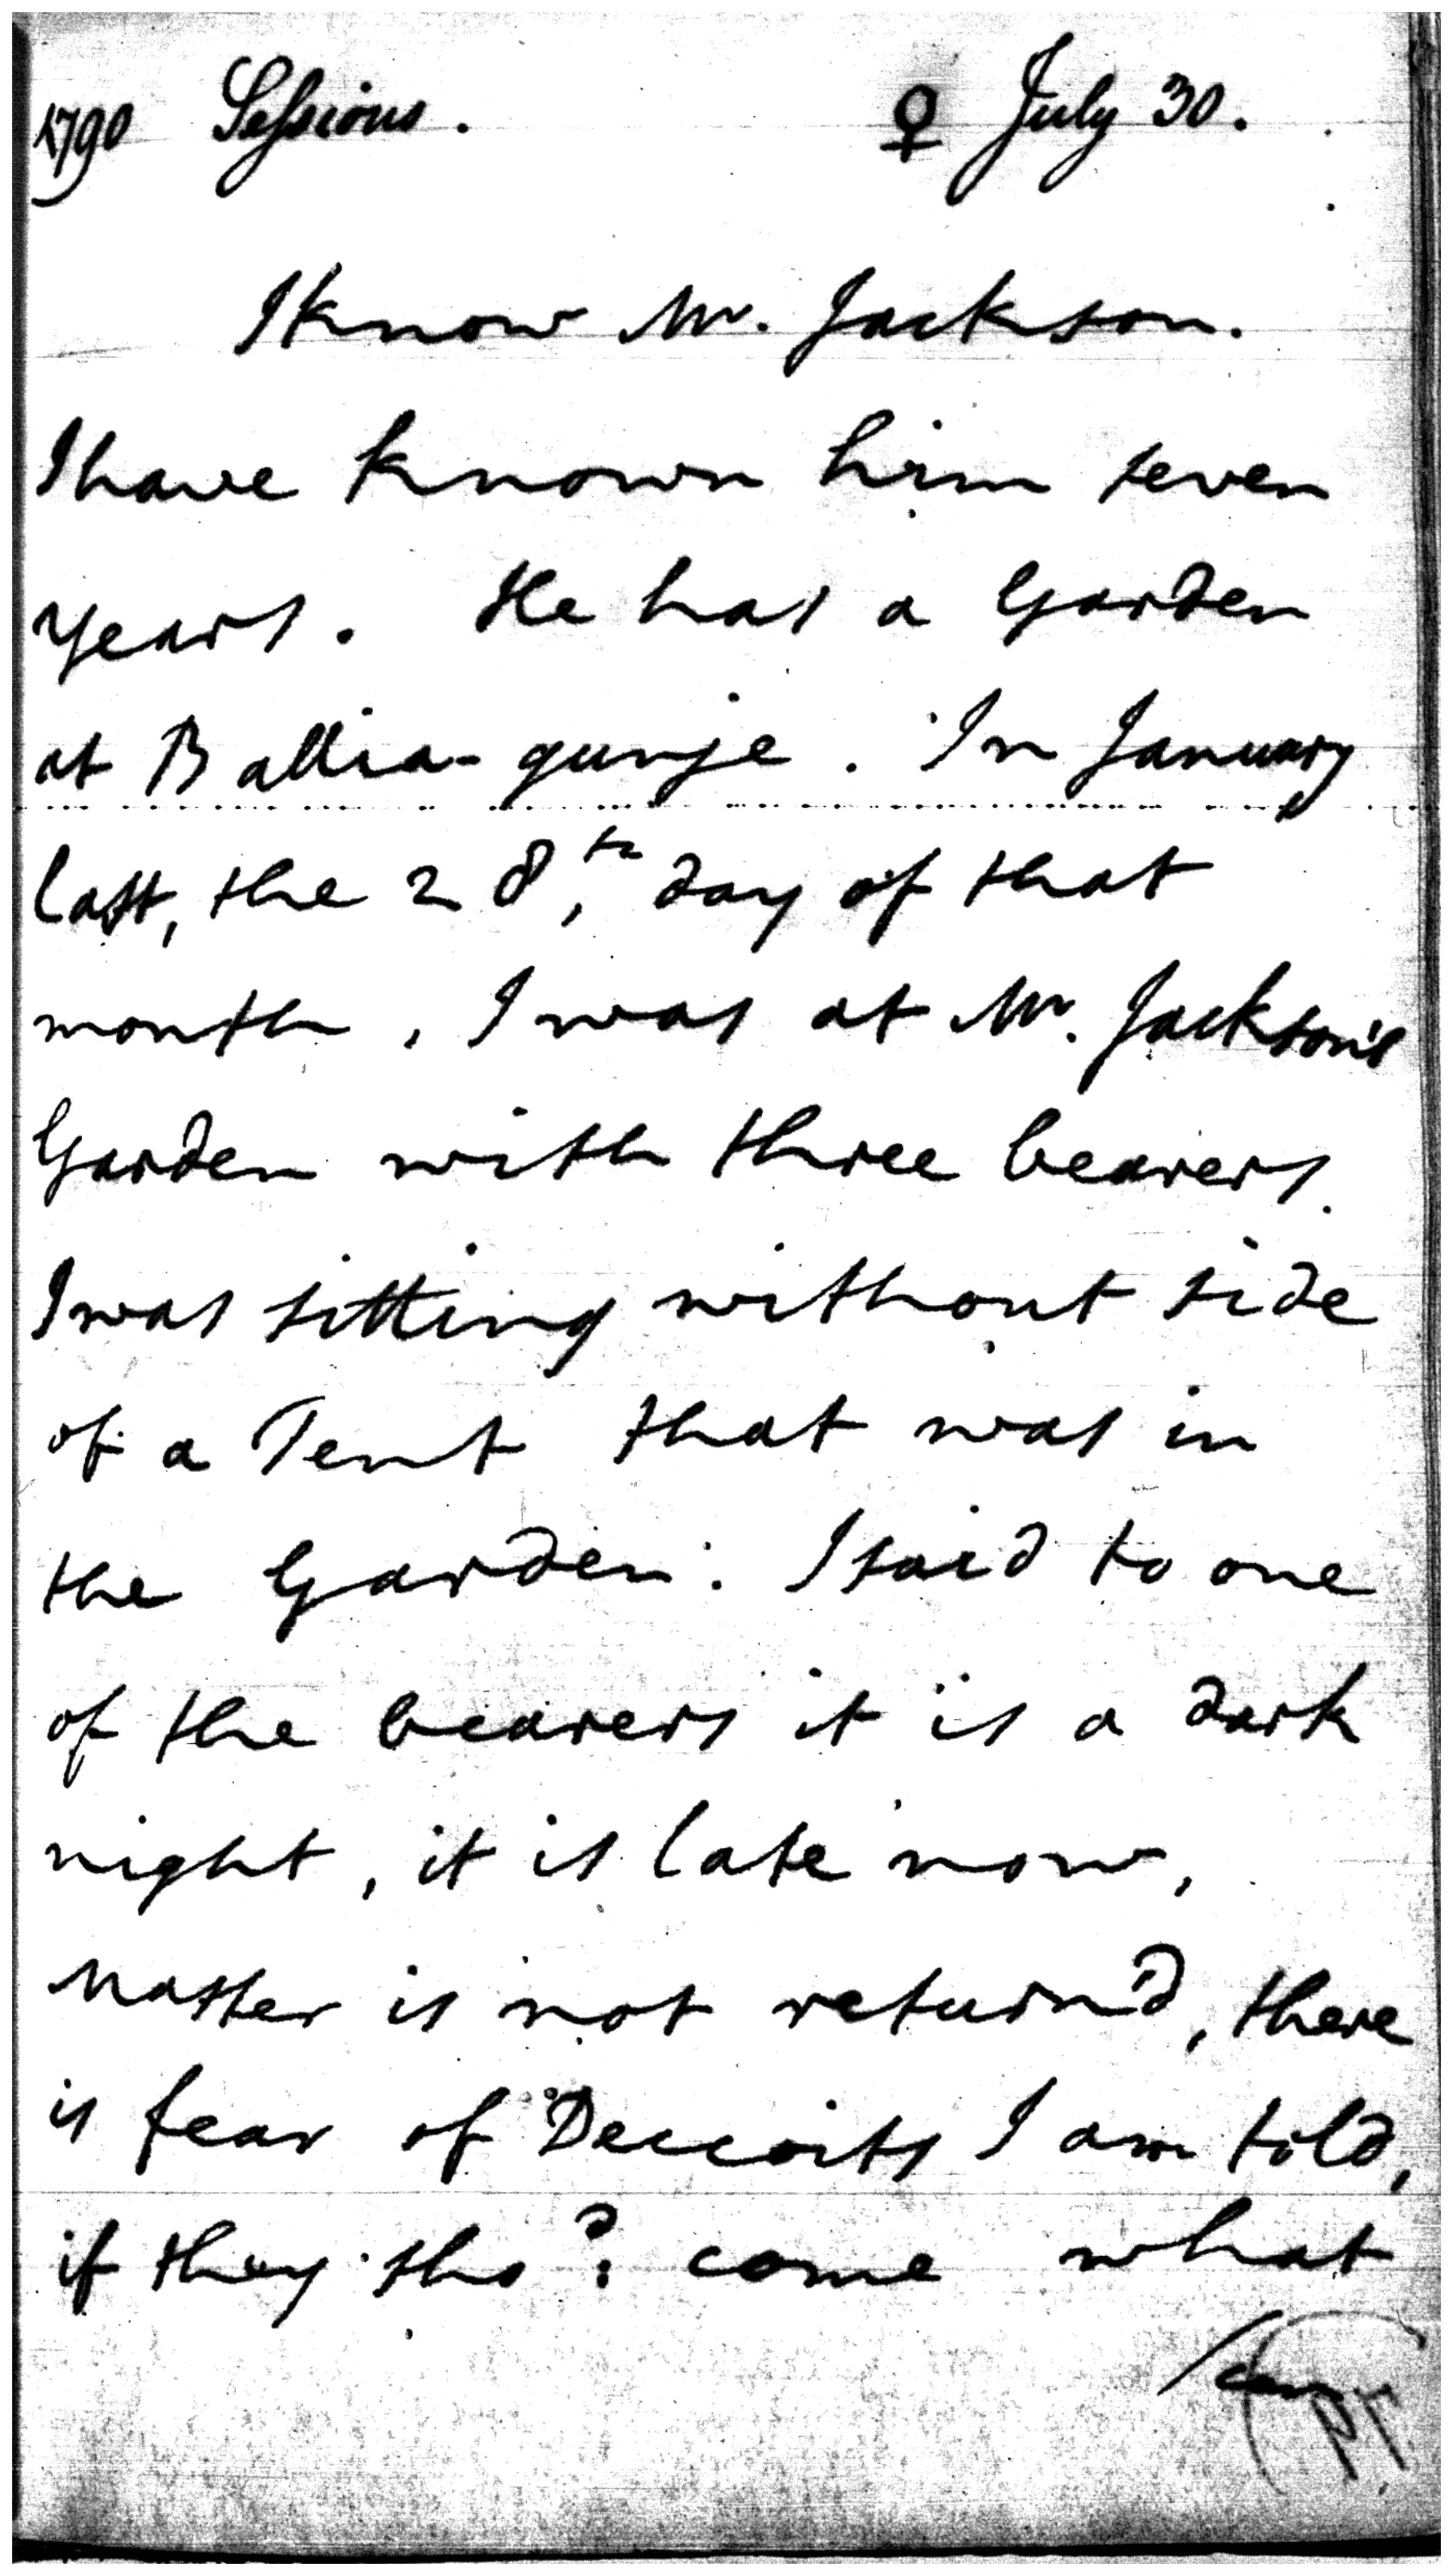 1790 Sessions. ♀ July 30.
I know Mr. Jackson.
I have known him seven
years. He has a Garden
at Ballia-gunje. In January
last, the 28,th day of that
month, I was at Mr. Jackson's
Garden with three bearers.
I was sitting without side
of a Tent that was in
the Garden: I said to one
of the bearers it is a dark
night, it is late now,
Master is not return'd, there
is fear of Deccoits I am told,
if they sho.d come what
/can